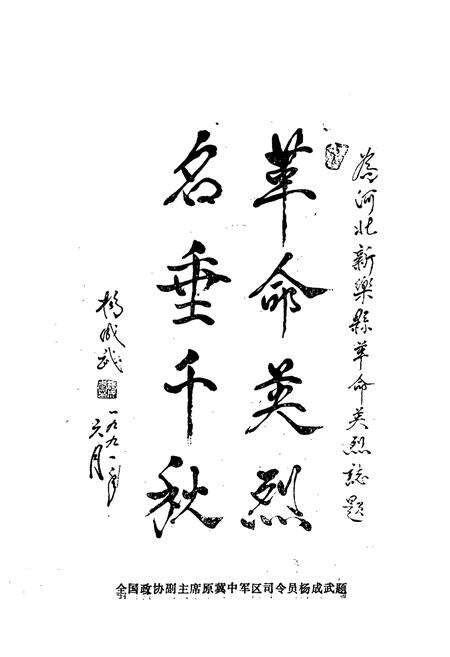 為河北新樂縣革命英烈誌題
革命英烈
名垂千秋
楊成武
一九九一年
六月
全国政协副主席原冀中军区司令员杨成武题